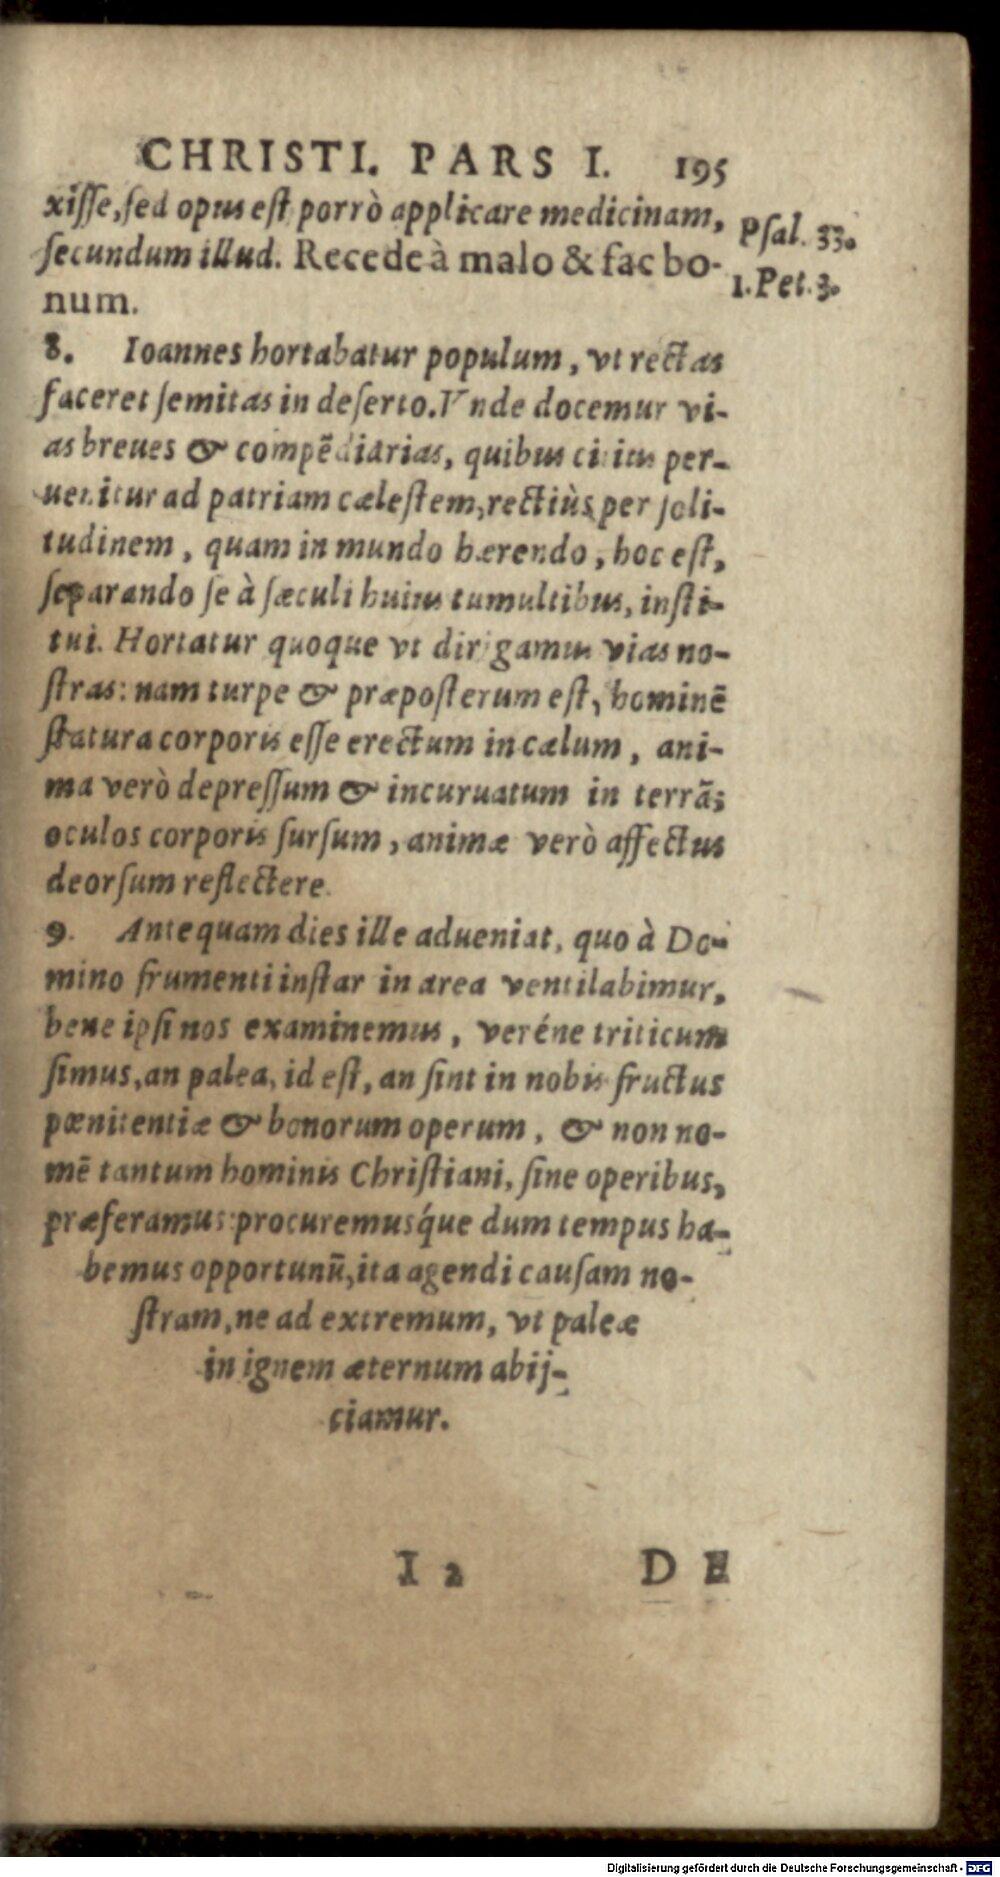 CHRISTI. PARS I. 195
xiſſe, ſed opus eſt porrò applicare medicinam,
Pſal. 33.
ſecundum illud. Recede à malo & fac bo-
1. Pet. 3.
num.
8. Ioannes hortabatur populum, vt rectas
faceret ſemitas in deſerto. Vnde docemur vi-
as breues & compẽdiarias, quibus citius per-
uenitur ad patriam cæleſtem, rectiùs per ſoli-
tudinem, quam in mundo hærendo, hoc eſt,
ſeparando ſe à ſæculi huius tumultibus, inſti-
tui. Hortatur quoque vt dirigamus vias no-
ſtras: nam turpe & præpoſterum eſt, hominẽ
ſtatura corporis eſſe erectum in cælum, ani-
ma verò depreſſum & incuruatum in terrã;
oculos corporis ſurſum, animæ verò affectus
deorſum reflectere.
9. Antequam dies ille adueniat, quo à Do-
mino frumenti inſtar in area ventilabimur,
bene ipſi nos examinemus, veréne triticum
ſimus, an palea, id eſt, an ſint in nobis fructus
pœnitentiæ & bonorum operum, & non no-
mẽ tantum hominis Chriſtiani, ſine operibus,
præferamus: procuremusq́ue dum tempus ha-
bemus opportunũ, ita agendi cauſam no-
ſtram, ne ad extremum, vt paleæ
in ignem æternum abij-
ciamur.
I 2 DE
Digitalisierung gefördert durch die Deutsche Forschungsgemeinschaft - DFG